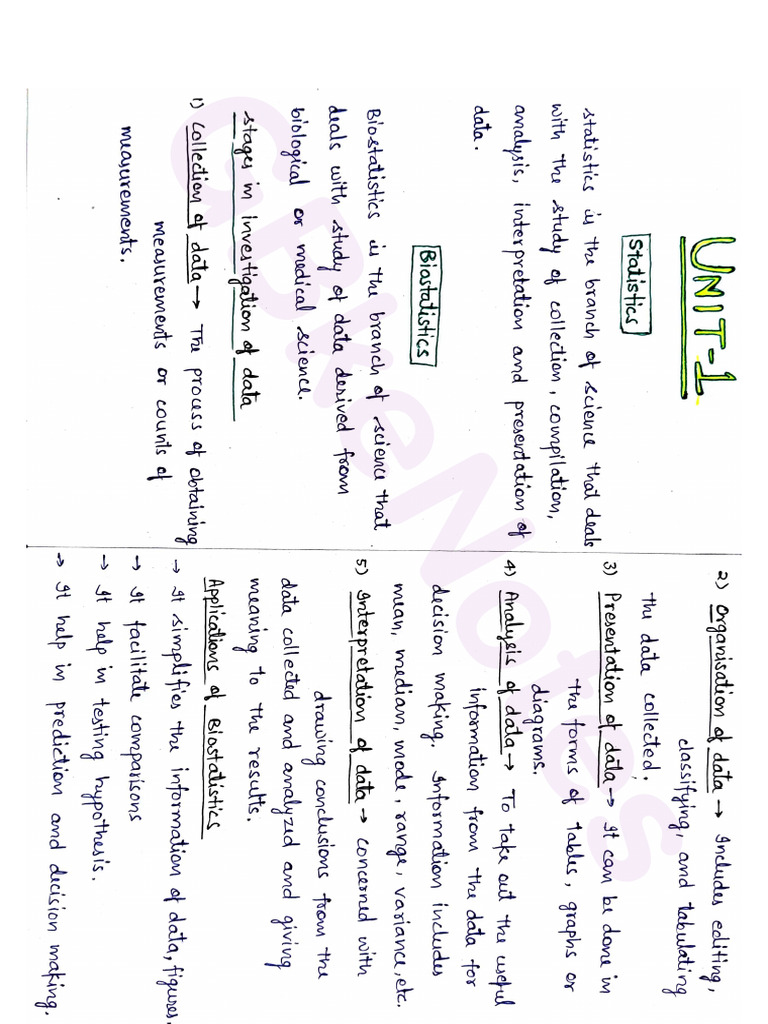 UNIT-1
Statistics
statistics is the branch of science that deals
with the study of collection, compilation,
analysis, interpretation and presentation of
data.
Biostatistics
Biostatistics is the branch of science that
deals with study of data derived from
biological or medical science.
stages in investigation of data
1) Collection of data → The process of obtaining
measurements or counts of
measurements.
2) Organisation of data → Includes editing,
classifying, and tabulating
the data collected.
3) Presentation of data → It can be done in
the forms of tables, graphs or
diagrams.
4) Analysis of data → To take out the useful
information from the data for
decision making. Information includes
mean, median, mode, range, variance, etc.
5) Interpretation of data → concerned with
drawing conclusions from the
data collected and analyzed and giving
meaning to the results.
Applications of Biostatistics
→ It simplifies the information of data, figures.
→ It facilitate comparisons
→ It help in testing hypothesis.
→ It help in prediction and decision making.